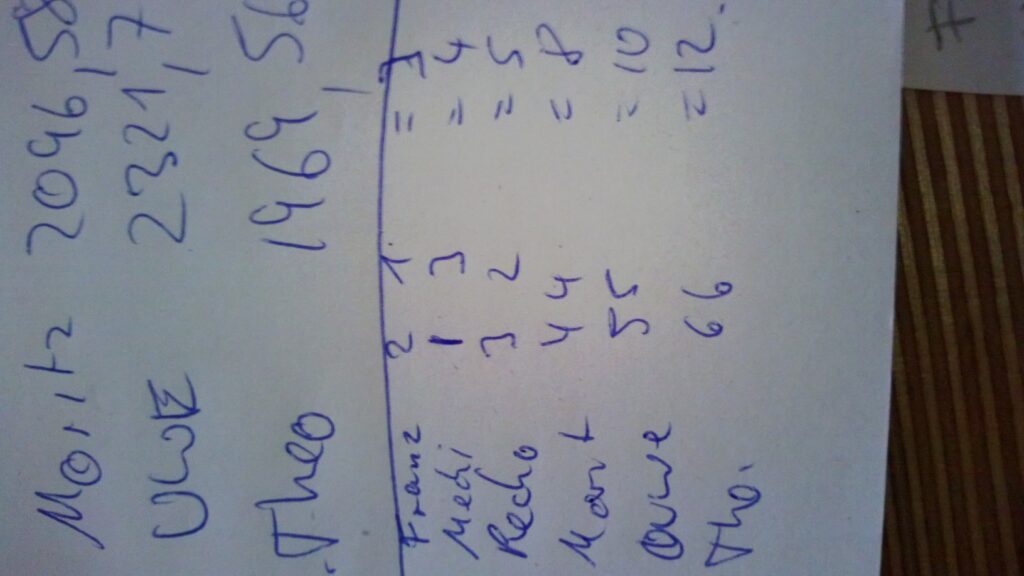 Moritz 2096,58
UWE 2321,7
Theo 1969,56
Franz 2 1 = 3
Mechi 1 3 = 4
Pecho 3 2 = 5
Mort 4 4 = 8
Ouwe 5 5 = 10
Tho. 6 6 = 12.
7